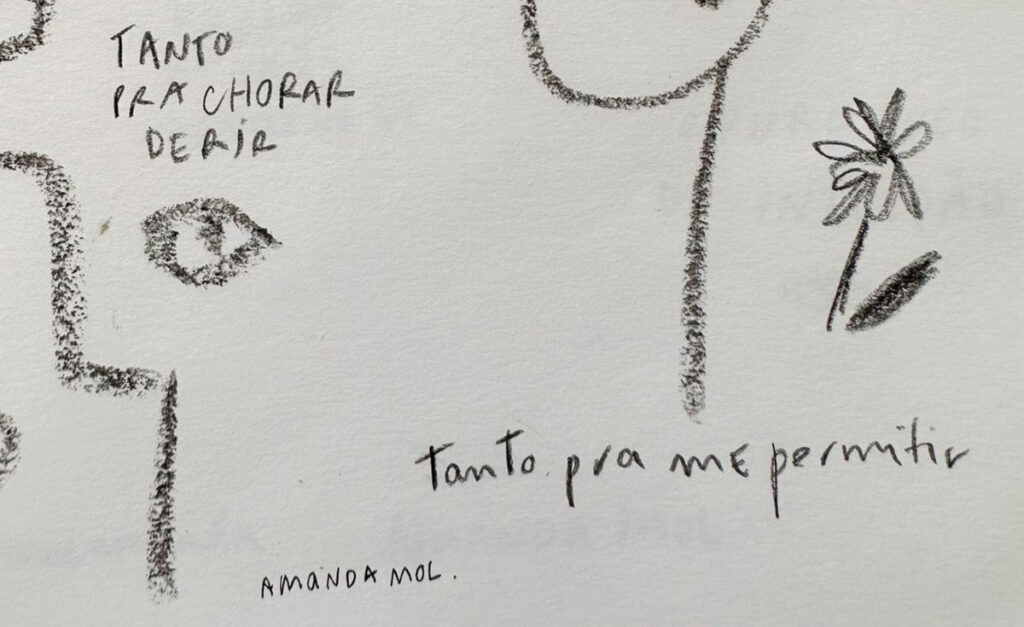 TANTO
PRA CHORAR
DE RIR
tanto pra me permitir
AMANDA MOL.